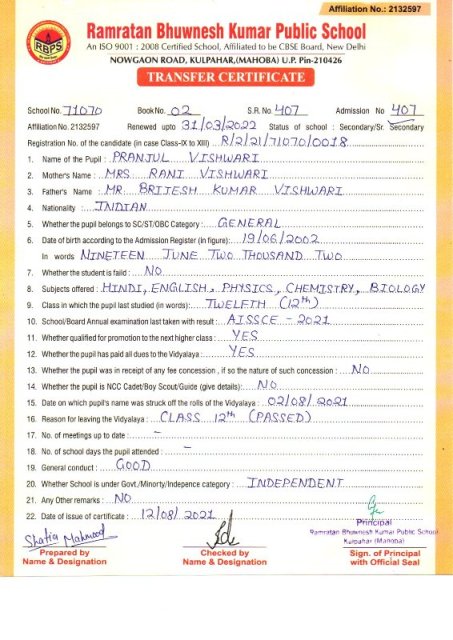 Affiliation No.: 2132597
RBPS
Ramratan Bhuwnesh Kumar Public School
An ISO 9001 : 2008 Certified School, Affiliated to be CBSE Board, New Delhi
NOWGAON ROAD, KULPAHAR,(MAHOBA) U.P. Pin-210426
TRANSFER CERTIFICATE
School No. 71070 Book No. 02 S.R. No. 407 Admission No 407
Affiliation No. 2132597 Renewed upto 31/03/2022 Status of school : Secondary/Sr. Secondary
Registration No. of the candidate (in case Class-IX to XIII) R/2/21/71070/0018
1. Name of the Pupil : PRANJUL VISHWARI
2. Mother's Name : MRS RANI VISHWARI
3. Father's Name : MR. BRIJESH KUMAR VISHWARI
4. Nationality : INDIAN
5. Whether the pupil belongs to SC/ST/OBC Category : GENERAL
6. Date of birth according to the Admission Register (in figure) : 19/06/2002
In words NINETEEN JUNE TWO THOUSAND TWO
7. Whether the student is faild : NO
8. Subjects offered : HINDI, ENGLISH, PHYSICS, CHEMISTRY, BIOLOGY
9. Class in which the pupil last studied (in words) : TWELFTH (12th)
10. School/Board Annual examination last taken with result : AISSCE - 2021
11. Whether qualified for promotion to the next higher class : YES
12. Whether the pupil has paid all dues to the Vidyalaya : YES
13. Whether the pupil was in receipt of any fee concession , if so the nature of such concession : NO
14. Whether the pupil is NCC Cadet/Boy Scout/Guide (give details) : NO
15. Date on which pupil's name was struck off the rolls of the Vidyalaya : 02/08/2021
16. Reason for leaving the Vidyalaya : CLASS 12th (PASSED)
17. No. of meetings up to date : -
18. No. of school days the pupil attended : -
19. General conduct : GOOD
20. Whether School is under Govt./Minorty/Indepence category : INDEPENDENT
21. Any Other remarks : NO
22. Date of issue of certificate : 12/08/2021
Principal
Ramratan Bhuwnesh Kumar Public School
Kulpahar (Mahoba)
Shafiq Mahmood
Prepared by Checked by Sign. of Principal
Name & Designation Name & Designation with Official Seal